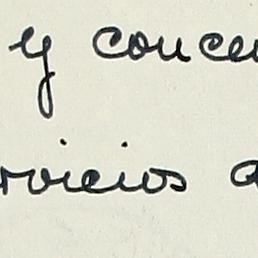 y conce
rvicios a